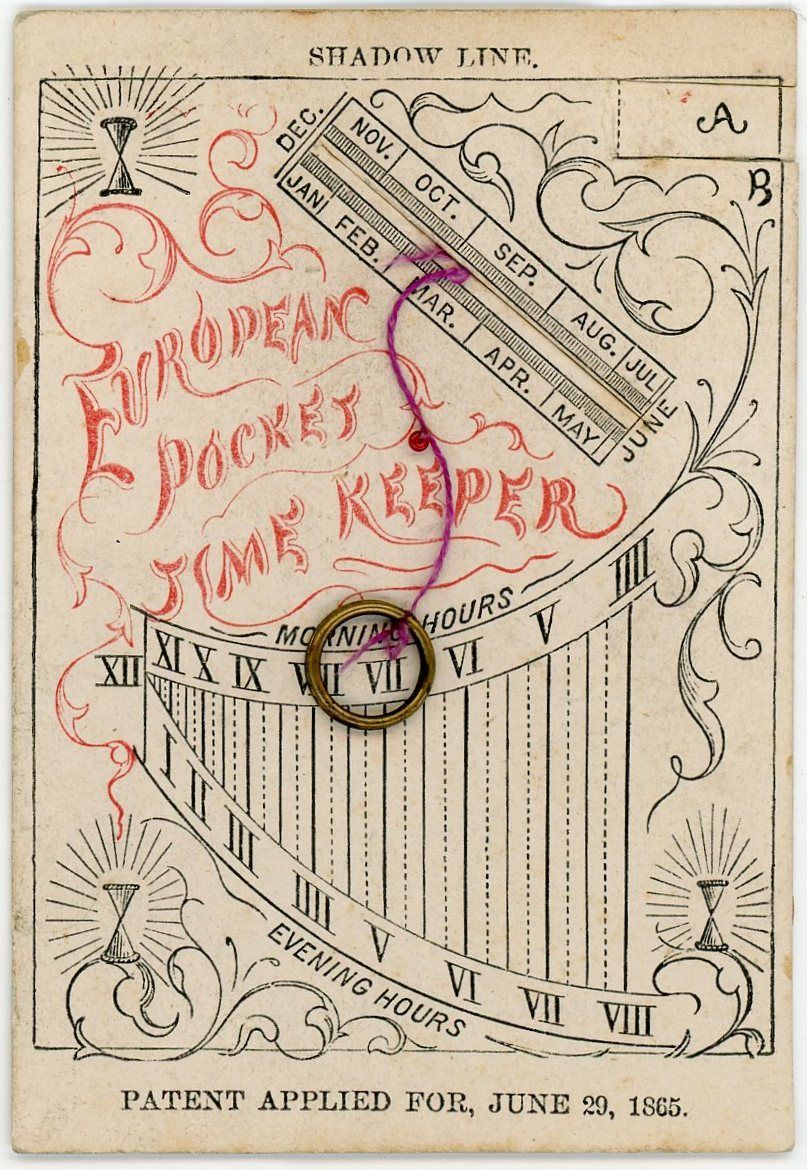 SHADOW LINE.
A
B
DEC.
NOV. OCT. SEP. AUG. JUL
JAN FEB. MAR. APR. MAY
JUNE
EUROPEAN
POCKET
TIME KEEPER
MORNING HOURS
XII XI X IX VIII VII VI V IIII
I II III IIII V VI VII VIII
EVENING HOURS
PATENT APPLIED FOR, JUNE 29, 1865.